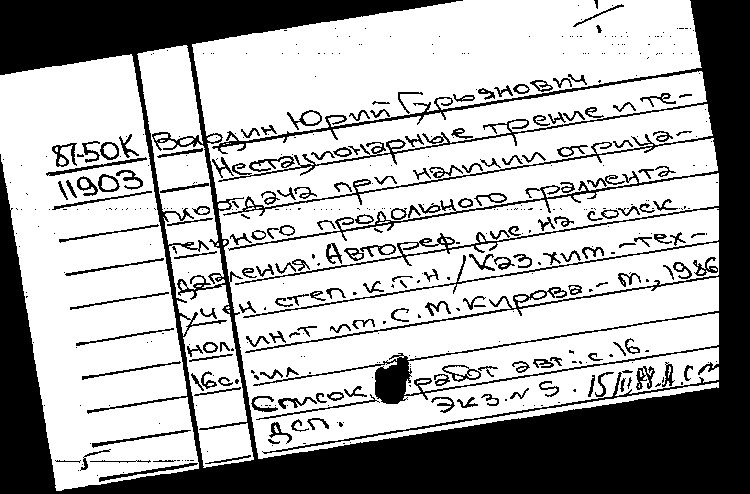 87-50К
11903
Володин, Юрий Гурьянович.
Нестационарные трение и те-
плоотдача при наличии отрица-
тельного продольного градиента
давления: Автореф. дис. на соиск.
учен. степ. к.т.н. / Каз. хим.-тех-
нол. ин-т им. С.М. Кирова. - М., 1986
16с. ил.
Список работ авт.: с. 16.
Дсп. Экз. N 5.